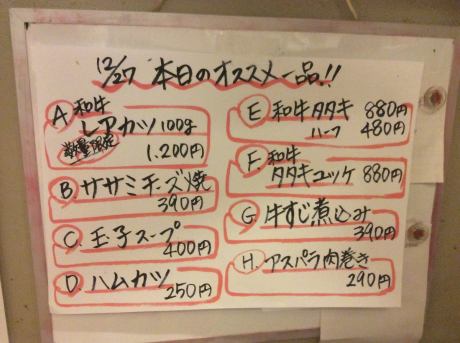 12/27 本日のオススメ一品!!
A 和牛
レアカツ 100g
数量限定
1.200円
B ササミチーズ焼
390円
C 玉子スープ
400円
D ハムカツ
250円
E 和牛タタキ 880円
ハーフ 480円
F 和牛
タタキユッケ 880円
G 牛すじ煮込み
390円
H アスパラ肉巻き
290円